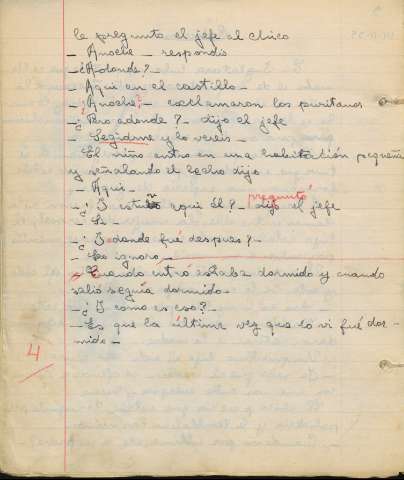 le pregunto el jefe al chico
- Anoche - respondio
- ¿Adonde? -
- Aqui en el castillo -
- ¡Anoche! - exclamaron los puritanos
- ¿Pero adonde? - dijo el jefe
- Segidme y lo vereis -
- El niño entro en una habitación pequeña
y señalando el lecho dijo
- Aqui -
preguntó
- ¿I estubo aqui él? - dijo el jefe
- Si -
- ¿I donde fué despues? -
- Lo ignoro -
- Cuando entró estaba dormido y cuando
salio seguia dormido -
- ¿I como es eso? -
- Es que la última vez que lo vi fué dor-
mido -
4